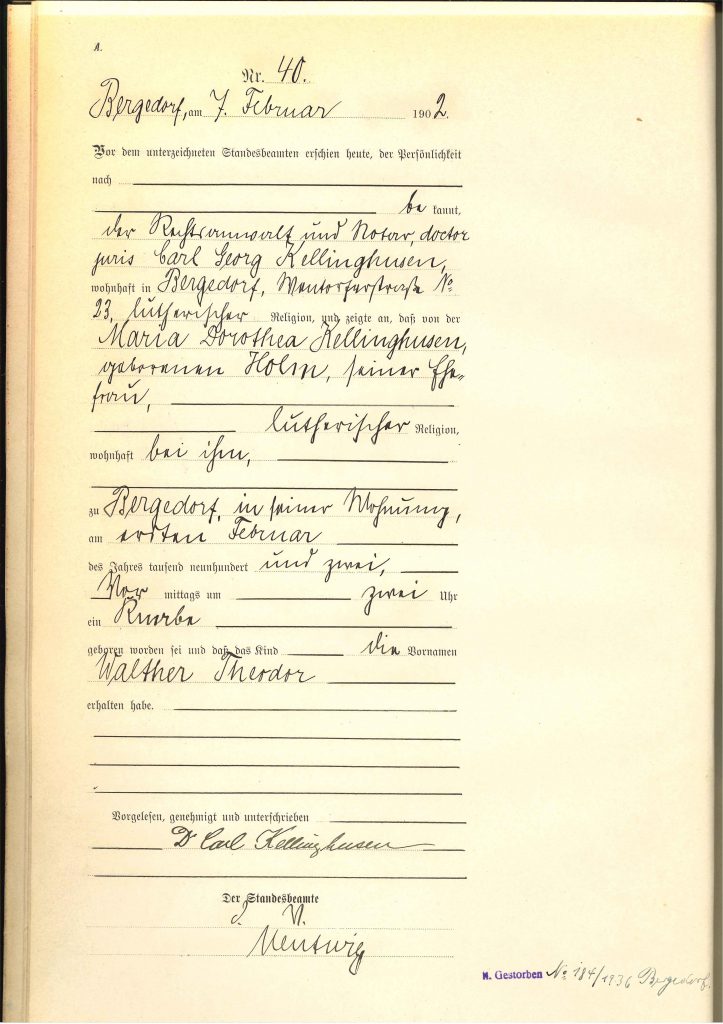 A.
Nr. 40.
Bergedorf, am 7. Februar 1902.
Vor dem unterzeichneten Standesbeamten erschien heute, der Persönlichkeit
nach
bekannt,
der Rechtsanwalt und Notar, doctor
juris Carl Georg Kellinghusen,
wohnhaft in Bergedorf, Wentorferstraße No
23, lutherischer Religion, und zeigte an, daß von der
Maria Dorothea Kellinghusen,
geborenen Holm, seiner Ehe-
frau,
lutherischer Religion,
wohnhaft bei ihm,
zu Bergedorf, in seiner Wohnung,
am ersten Februar
des Jahres tausend neunhundert und zwei,
Vor mittags um zwei Uhr
ein Knabe
geboren worden sei und daß das Kind die Vornamen
Walther Theodor
erhalten habe.
Vorgelesen, genehmigt und unterschrieben
Dr Carl Kellinghusen
Der Standesbeamte
J. V.
Nentwig
K. Gestorben No 184/1936 Bergedorf.